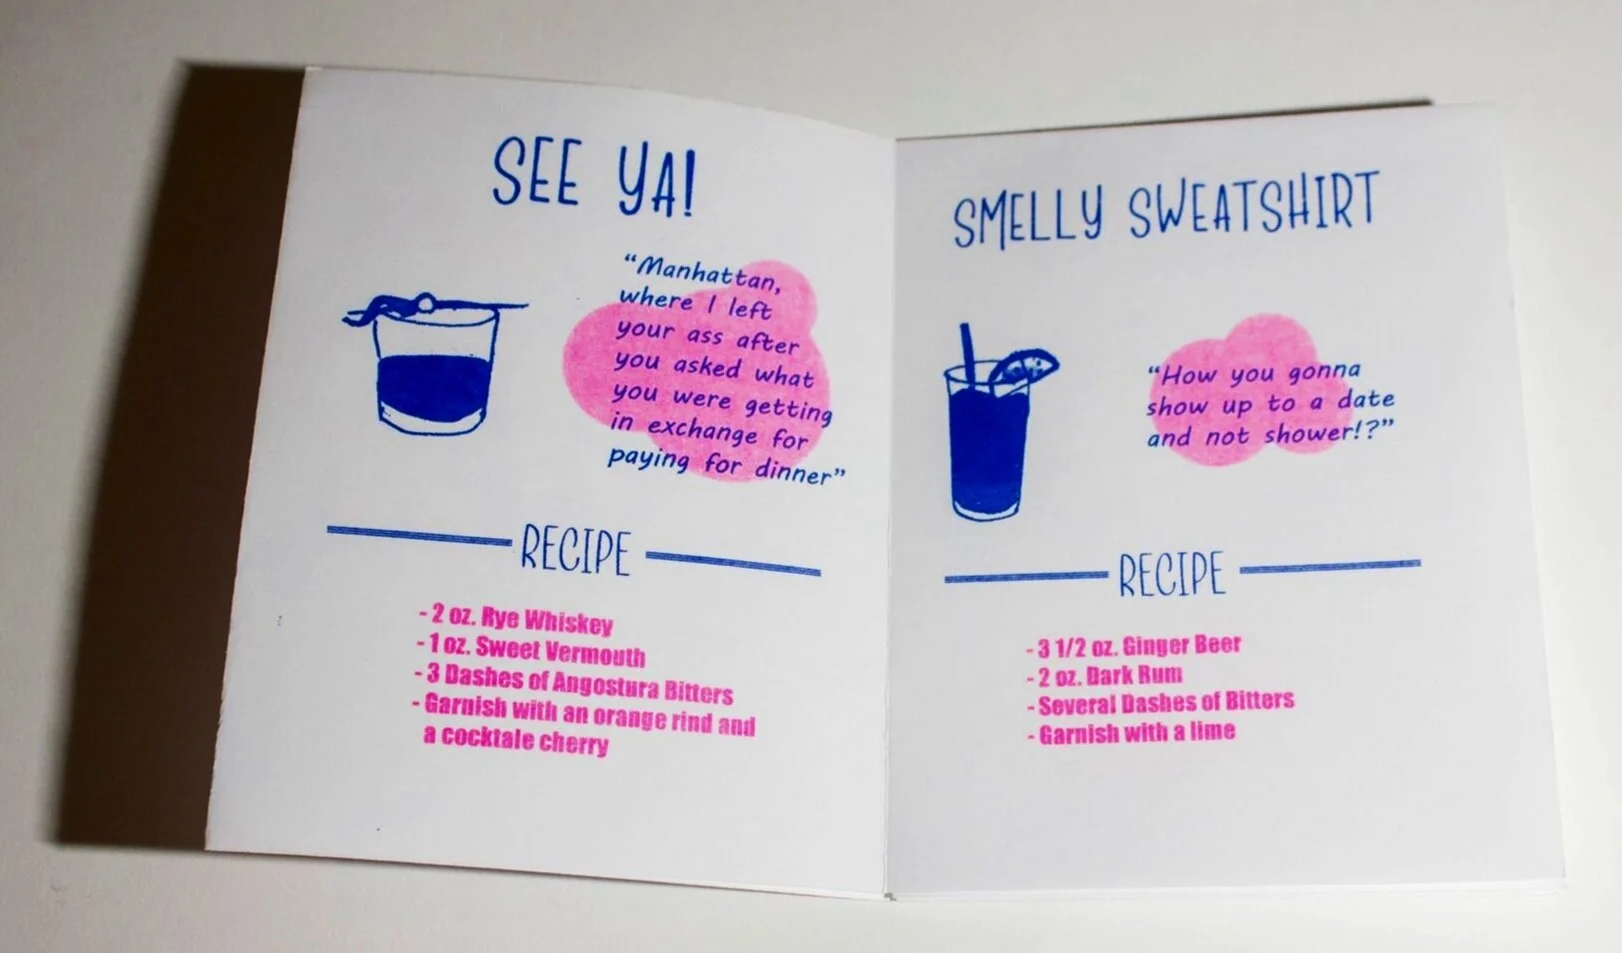 SEE YA!
“Manhattan,
where I left
your ass after
you asked what
you were getting
in exchange for
paying for dinner”
RECIPE
- 2 oz. Rye Whiskey
- 1 oz. Sweet Vermouth
- 3 Dashes of Angostura Bitters
- Garnish with an orange rind and
a cocktale cherry
SMELLY SWEATSHIRT
“How you gonna
show up to a date
and not shower!?”
RECIPE
- 3 1/2 oz. Ginger Beer
- 2 oz. Dark Rum
- Several Dashes of Bitters
- Garnish with a lime